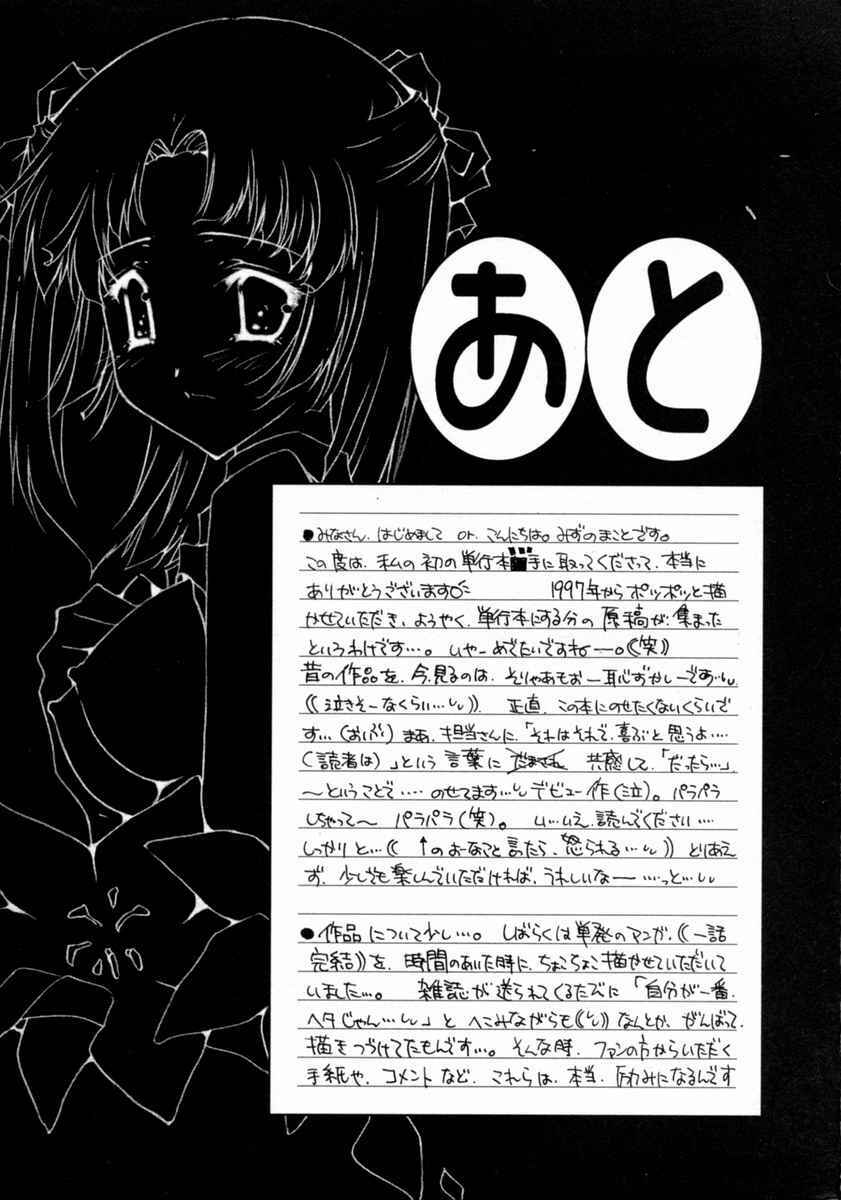 あと
●みなさん、はじめまして or、こんにちは。みずのまことです。
この度は、私の初の単行本手に取ってくださって、本当に
ありがとうございます 1997年からポツポツと描
かせていただき、ようやく、単行本にする分の原稿が、集まった
というわけです…。いやーめでたいですねー。((笑))
昔の作品を、今、見るのは、そりゃあもおー恥ずかしーです…
((泣きそーなくらい…)). 正直、この本にのせたくないくらいで
す…(おいぶ) まあ、担当さんに、「それはそれで、喜ぶと思うよ…
(読者は)」という言葉に だまされ 共感して、「だったら…」
～ということで…・のせてます…デビュー作(泣)。パラパラ
しちゃって～ パラパラ(笑)。 い…いえ、読んでください…
しっかりと…(( ↑のよーなこと言たら、怒られる…)) とりあえ
ず、少しでも楽しんでいただければ、うれしいなー…っと…
●作品について少し…。しばらくは単発のマンガ、((一話
完結))を、時間のあいた時に、ちょこちょこ描かせていただいて
いました…。 雑誌が送られてくるたびに「自分が一番、
ヘタじゃん…」とへこみながらも なんとか、がんばって、
描きつづけてたもんです…。そんな時、ファンの方からいただく
手紙や、コメントなど、これらは、本当、励みになるんです